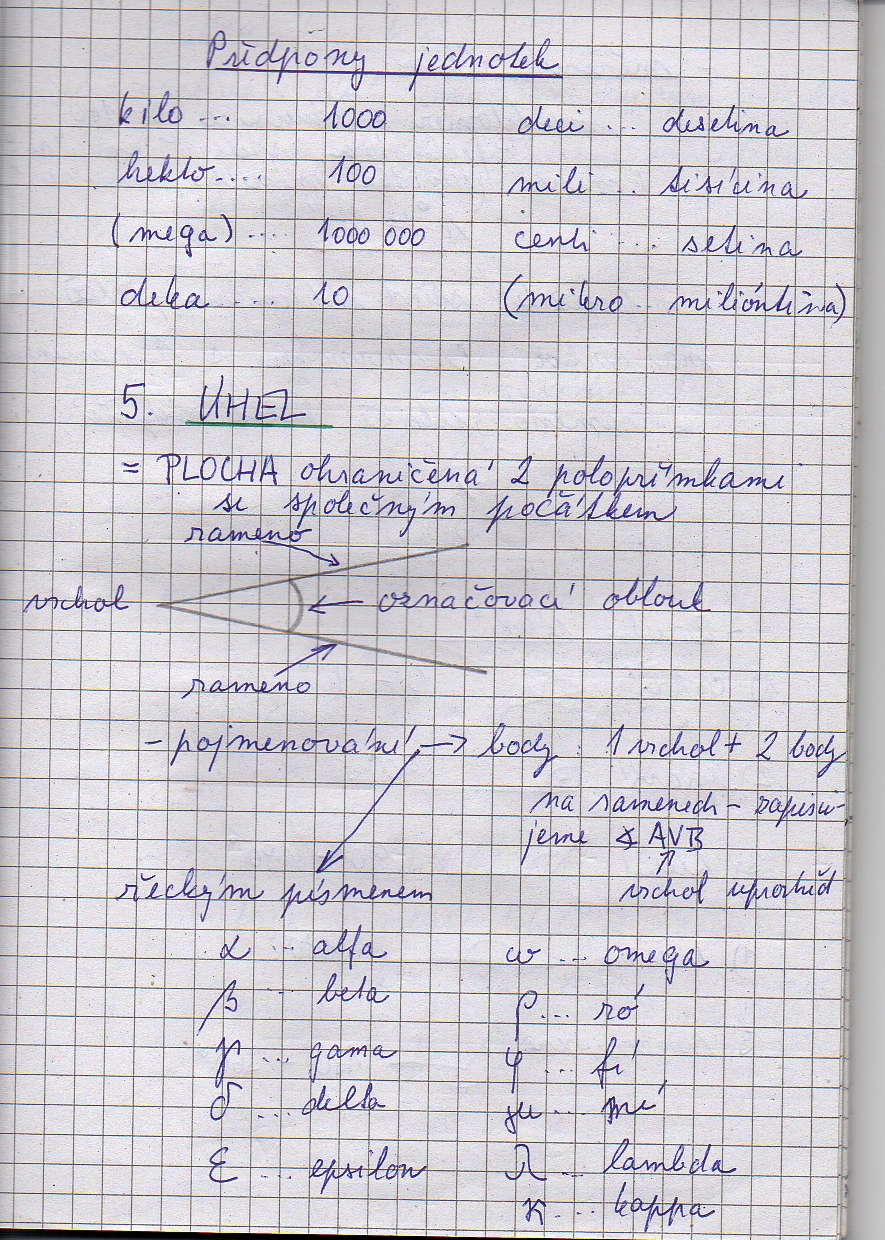 Předpony jednotek
kilo ... 1000 deci ... desetina
hekto.... 100 mili ... tisícina
(mega) .... 1000 000 centi ... setina
deka .... 10 (mikro .. milióntina)
5. ÚHEL
= PLOCHA ohraničená 2 polopřímkami
se společným počátkem
rameno
vrchol ← označovací oblouk
rameno
- pojmenování → body : 1 vrchol + 2 body
na ramenech - zapisu-
jeme ∢ AVB
↑
řeckým písmenem vrchol uprostřed
α ... alfa ω ... omega
β ... beta ρ ... ró
γ ... gama φ ... fí
δ ... delta μ ... mí
ε ... epsilon λ ... lambda
κ .... kappa